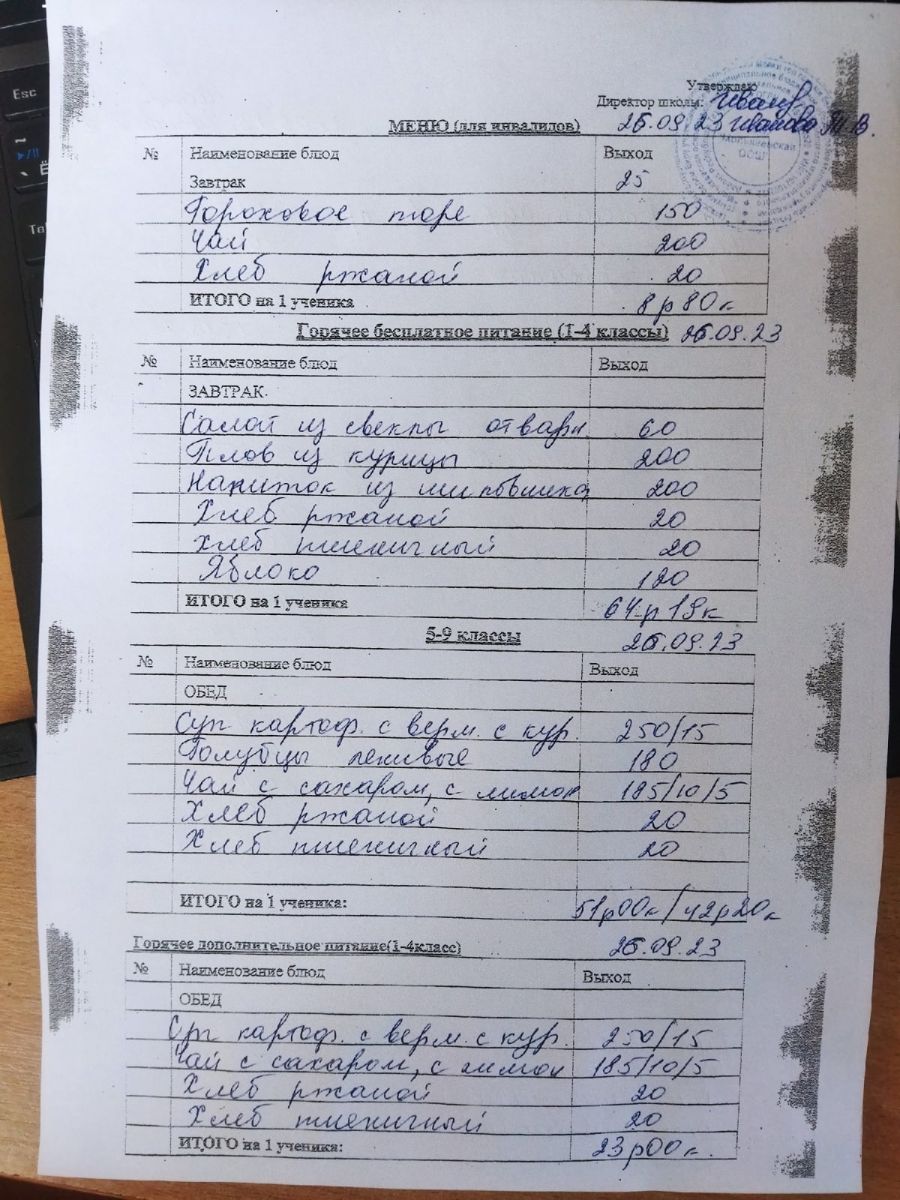 Esc
Утверждаю
Директор школы:
МЕНЮ (для инвалидов) 26.09.23 Иванова Т.В.
№ Наименование блюд Выход
Завтрак 25
Гороховое пюре 150
Чай 200
Хлеб ржаной 20
ИТОГО на 1 ученика 8р80к
Горячее бесплатное питание (1-4 классы) 26.09.23
№ Наименование блюд Выход
ЗАВТРАК
Салат из свеклы отварн 60
Плов из курицы 200
Напиток из шиповника 200
Хлеб ржаной 20
Хлеб пшеничный 20
Яблоко 120
ИТОГО на 1 ученика 64р19к
5-9 классы 26.09.23
№ Наименование блюд Выход
ОБЕД
Суп картоф. с верм. с кур. 250/15
Голубцы ленивые 180
Чай с сахаром, с лимон 185/10/5
Хлеб ржаной 20
Хлеб пшеничный 20
ИТОГО на 1 ученика: 51р00к/42р20к
Горячее дополнительное питание(1-4класс) 26.09.23
№ Наименование блюд Выход
ОБЕД
Суп картоф. с верм. с кур. 250/15
Чай с сахаром, с лимон 185/10/5
Хлеб ржаной 20
Хлеб пшеничный 20
ИТОГО на 1 ученика: 23р00к.